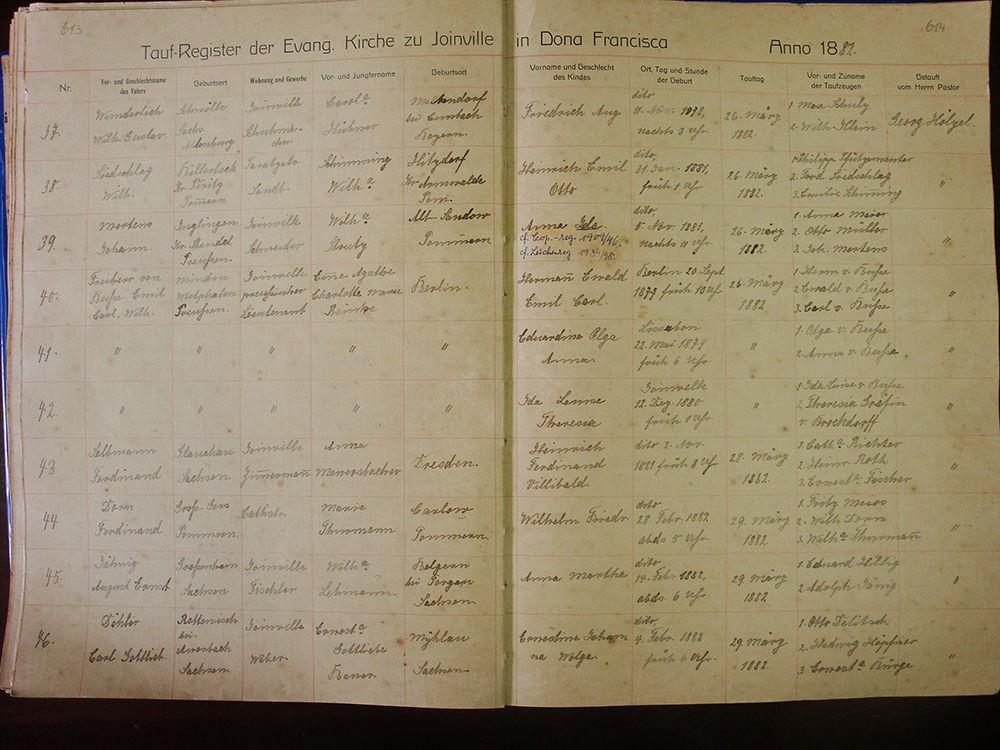 613
614
Tauf-Register der Evang. Kirche zu Joinville in Dona Francisca Anno 1882.
Nr.
Vor- und Geschlechtsname des Vaters
Geburtsort
Wohnung und Gewerbe
Vor- und Jungfername
Geburtsort
Vorname und Geschlecht des Kindes
Ort, Tag und Stunde der Geburt
Tauftag
Vor- und Zuname der Taufzeugen
Getauft vom Herrn Pastor
37.
Wunderlich
Wilh. Gustav.
Schmölln
Sachs.
Altenburg
Joinville
Schuhma-
cher
Carola
Hübner
bei
Bayern.
Friedrich Aug
dito
11. Nov.
nachts 3 Uhr
26. März
1882.
1. Max Schulz
2. Wilh. Klein
Georg Hölzel.
38.
Wilh.
Pommern
Schimming
Wilha
Kr. Arnswalde
Pom.
Heinrich Emil
Otto
dito,
31. Jan. 1881,
früh 1 Uhr
26. März
1882.
2. Ferd
3. Emilie Schiming
"
39.
Mertens
Johann.
Kr. Stendal
Preussen.
Joinville
Schneider
Wilha
Alt Sandow
Pommern
Anna Ida
cf. Cop.-reg. 1904/46.
cf. Leich.reg. 1934/98.
dito,
5. Nov. 1881,
nachts 11 Uhr
26. März
1882.
1. Anna Meier
2. Otto Müller
3. Joh. Mertens
"
40.
Freiherr von
Busse Emil
Carl, Wilh.
Minden
Westphalen
Preussen.
Joinville
preussischer
Lieutenant
Agathe
Charlotte Marie
Reinke
Berlin.
Hermann Ewald
Emil Carl.
Berlin 20. Sept.
1877 früh 10 Uhr
26. März
1882
1. Herm v. Busse
2. Ewald v. Busse
3. Carl v. Busse
"
41.
" " " " "
Eduardine Olga
Anna.
Lissabon
22. Mai 1879
früh 6 Uhr
"
1. Olga v. Busse
2. Anna v. Busse
"
42.
" " " " "
Ida Louise
Theresia
Joinville
12. Dez. 1880
früh 1 Uhr
"
1. Ida Luise v. Busse
2. Theresia Gräfin
v. Brockdorff
"
43
Seltmann
Ferdinand
Glauchau
Sachsen
Joinville
Zimmermann
Anna
Dresden.
Heinrich
Ferdinand
Villibald.
dito 2. Nov.
1881 früh 8 Uhr
28. März
1882.
1. Catha. Richter
2. Heinr. Roth
3. Ernesta Fischer
"
44
Dorn
Ferdinand
Pommern.
Cathstr.
Marie
Thurmann
Carlow
Pommern.
Wilhelm Friedr.
dito
28. Febr. 1882.
abds 5 Uhr
29. März
1882.
2. Wilh Dorn
3. Wilha Thurmann
"
45.
August Ernst
Sachsen
Joinville
Tischler
Wilha
Lehmann.
Belgern
bei Torgau
Sachsen.
Anna Martha
dito,
14. Febr. 1882,
abds. 6 Uhr
29. März
1882
1. Eduard
2. Adolph
"
46.
Döhler
Carl Gottlieb.
bei
Auerbach
Sachsen
Joinville
Weber.
Ernesta
Gottliebe
Bauer
Mühlau
Sachsen
Ernestine Johan-
na
dito,
4. Febr. 1882
früh 6 Uhr.
29. März
1882.
1. Otto Delitsch
2. Hedwig Höpfner
3. Ernesta Bürge
"